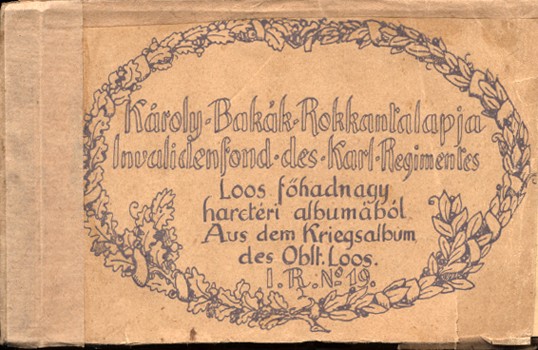 Károly-Bakák-Rokkantalapja
Invalidenfond-des-Karl-Regimentes
Loos főhadnagy
harctéri albumából.
Aus dem Kriegsalbum
des Oblt. Loos.
I.R. Nº 19.